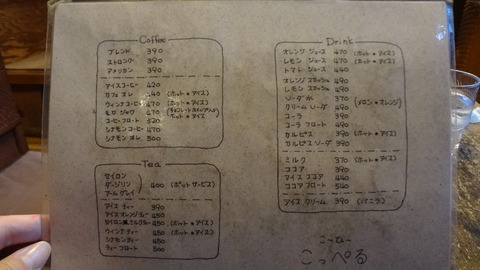 Coffee
ブレンド 390
ストロング 390
アメリカン 390
アイスコーヒー 420
カフェ オレ 440 (ホット・アイス)
ウィンナコーヒー 470 (ホット・アイス)
モカ ジャバ 470
ホット・アイス
コーヒーフロート 520
シナモンコーヒー 470
シナモン オレ 500
Tea
セイロン
ダージリン 400 (ポットサービス)
アールグレイ
アイス ティー 390
アイスオレンジティー 450
450 (ホット・アイス)
ウィンナティー 450 (ホット・アイス)
シナモンティー 450
ティーフロート 500
Drink
オレンジ ジュース 470 (ホット・アイス)
レモン ジュース 470 (ホット・アイス)
トマト ジュース 440
オレンジ スカッシュ 490
レモン スカッシュ 490
ソーダ水 370 (メロン・オレンジ)
クリーム ソーダ 490
コーラ 390
コーラ フロート 490
カルピス 390 (ホット・アイス)
カルピス ソーダ 390
ミルク 370 (ホット・アイス)
ココア 390
アイス ココア 440
ココア フロート 540
アイス クリーム 390 (バニラ)
こーひー
こっぺる